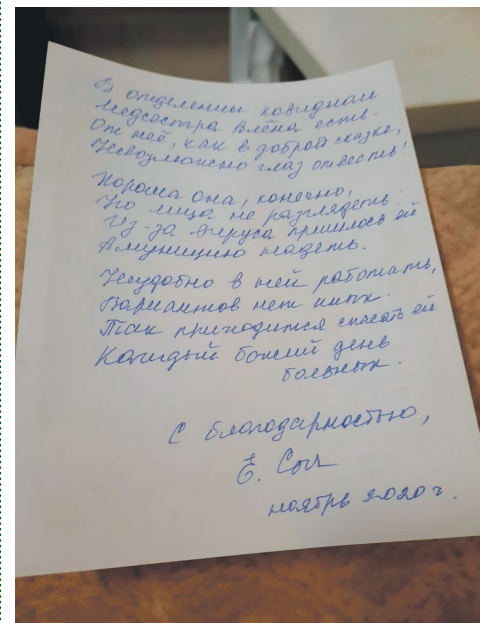 В отделении ковидном
Медсестра Алёна есть.
От неё, как в доброй сказке,
Невозможно глаз отвесть!
Хороша она, конечно,
Но лица не разглядеть.
Из-за вируса пришлось ей
Амуницию надеть.
Неудобно в ней работать,
Вариантов нет иных.
Так приходится спасать ей
Каждый божий день
больных.
С благодарностью,
Ё.
ноябрь 2020 г.